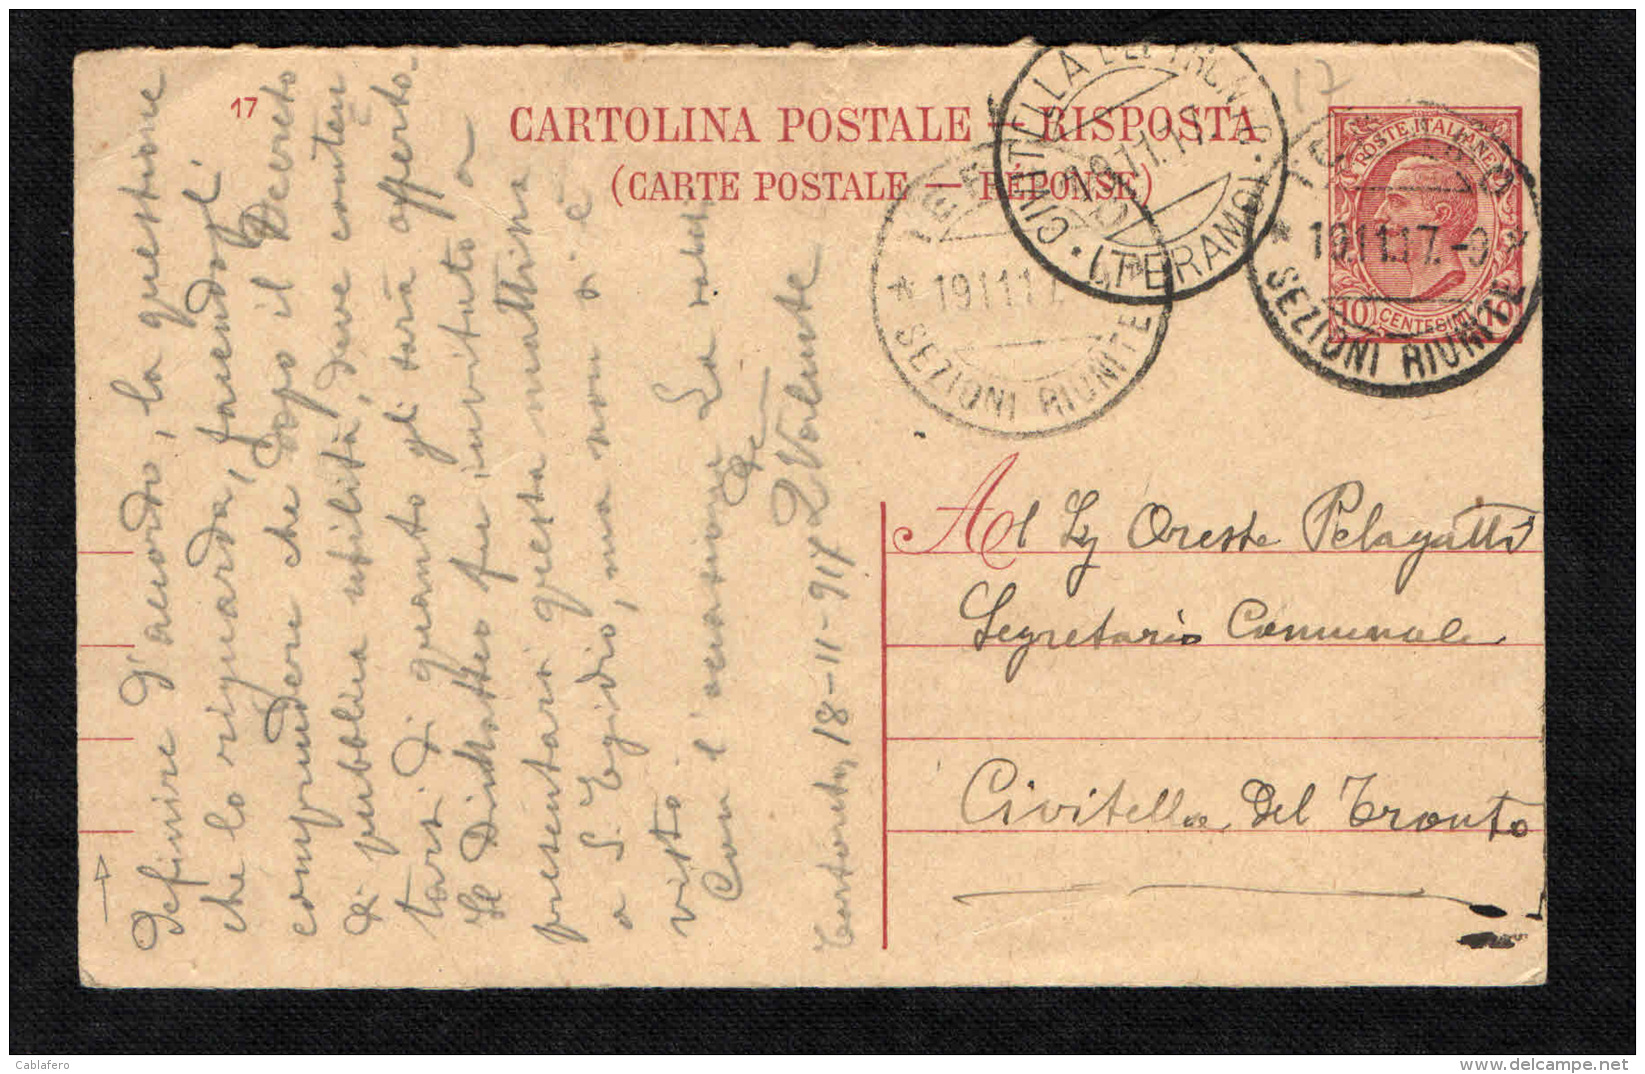 17
17
CARTOLINA POSTALE — RISPOSTA
(CARTE POSTALE — RÉPONSE)
POSTE ITALIANE
10 CENTESIMI 10
CIVITELLA DEL TRONTO
19.11.17
(TERAMO)
TERAMO
19.11.17
SEZIONI RIUNITE
TERAMO
19.11.17.-9
SEZIONI RIUNITE
Al Sg Oreste Pelagatti
Segretario Comunale
Civitella del Tronto
definire d'accordo, la questione
che lo riguarda, facendogli
comprendere che dopo il Decreto
di pubblica utilità, deve conten
tarsi di quanto gli sarà offerto.
Il Di Matteo fu invitato a
presentarsi questa mattina
a S. Egidio, ma non si è
visto.
Con l'occasione La
Valente
18-11-917
Cablafero
www.delcampe.net